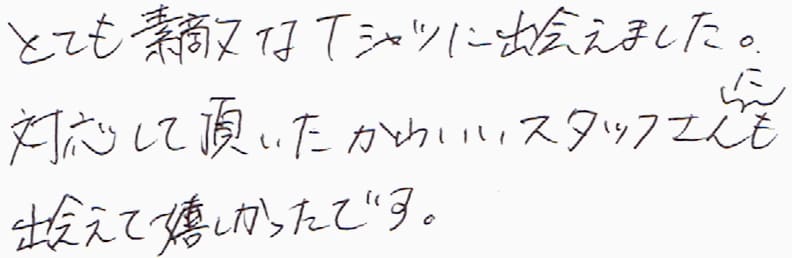 とても素敵なTシャツに出会えました。
対応して頂いたかわいいスタッフさんにも
出会えて嬉しかったです。